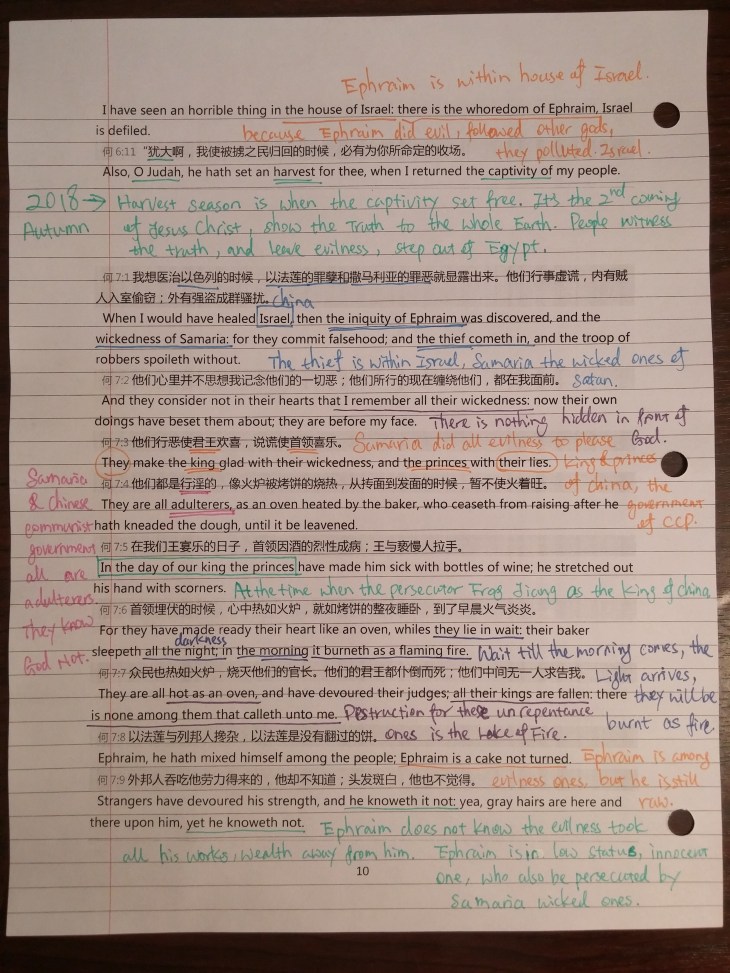 Ephraim is within house of Israel.
I have seen an horrible thing in the house of Israel: there is the whoredom of Ephraim, Israel
is defiled.
because Ephraim did evil, followed other gods,
they polluted Israel.
何 6:11 “犹大啊，我使被掳之民归回的时候，必有为你所命定的收场。
Also, O Judah, he hath set an harvest for thee, when I returned the captivity of my people.
2018 → Harvest season is when the captivity set free. It's the 2nd coming
Autumn of Jesus Christ, show the Truth to the whole Earth. People witness
the truth, and leave evilness, step out of Egypt.
何 7:1 我想医治以色列的时候，以法莲的罪孽和撒马利亚的罪恶就显露出来。他们行事虚谎，内有贼
人入室偷窃；外有强盗成群骚扰。
china
When I would have healed Israel, then the iniquity of Ephraim was discovered, and the
wickedness of Samaria: for they commit falsehood; and the thief cometh in, and the troop of
robbers spoileth without.
The thief is within Israel, Samaria the wicked ones of
Satan.
何 7:2 他们心里并不思想我记念他们的一切恶；他们所行的现在缠绕他们，都在我面前。
And they consider not in their hearts that I remember all their wickedness: now their own
doings have beset them about; they are before my face.
There is nothing hidden in front of
God.
何 7:3 他们行恶使君王欢喜，说谎使首领喜乐。
Samaria did all evilness to please
They make the king glad with their wickedness, and the princes with their lies.
king & princes
of china, the
government
of CCP.
何 7:4 他们都是行淫的，像火炉被烤饼的烧热，从抟面到发面的时候，暂不使火着旺。
They are all adulterers, as an oven heated by the baker, who ceaseth from raising after he
hath kneaded the dough, until it be leavened.
Samaria
& Chinese
communist
government
all are
adulterers.
They know
God Not.
何 7:5 在我们王宴乐的日子，首领因酒的烈性成病；王与亵慢人拉手。
In the day of our king the princes have made him sick with bottles of wine; he stretched out
his hand with scorners.
At the time when the persecutor Frog Jiang as the King of china
何 7:6 首领埋伏的时候，心中热如火炉，就如烤饼的整夜睡卧，到了早晨火气炎炎。
For they have made ready their heart like an oven, whiles they lie in wait: their baker
darkness
sleepeth all the night; in the morning it burneth as a flaming fire.
Wait till the morning comes, the
Light arrives,
they will be
burnt as fire.
何 7:7 众民也热如火炉，烧灭他们的官长。他们的君王都仆倒而死；他们中间无一人求告我。
They are all hot as an oven, and have devoured their judges; all their kings are fallen: there
is none among them that calleth unto me.
Destruction for these unrepentance
ones is the Lake of Fire.
何 7:8 以法莲与列邦人搀杂，以法莲是没有翻过的饼。
Ephraim, he hath mixed himself among the people; Ephraim is a cake not turned.
Ephraim is among
evilness ones, but he is still
raw.
何 7:9 外邦人吞吃他劳力得来的，他却不知道；头发斑白，他也不觉得。
Strangers have devoured his strength, and he knoweth it not: yea, gray hairs are here and
there upon him, yet he knoweth not.
Ephraim does not know the evilness took
all his works, wealth away from him. Ephraim is in low status, innocent
one, who also be persecuted by
Samaria wicked ones.
10